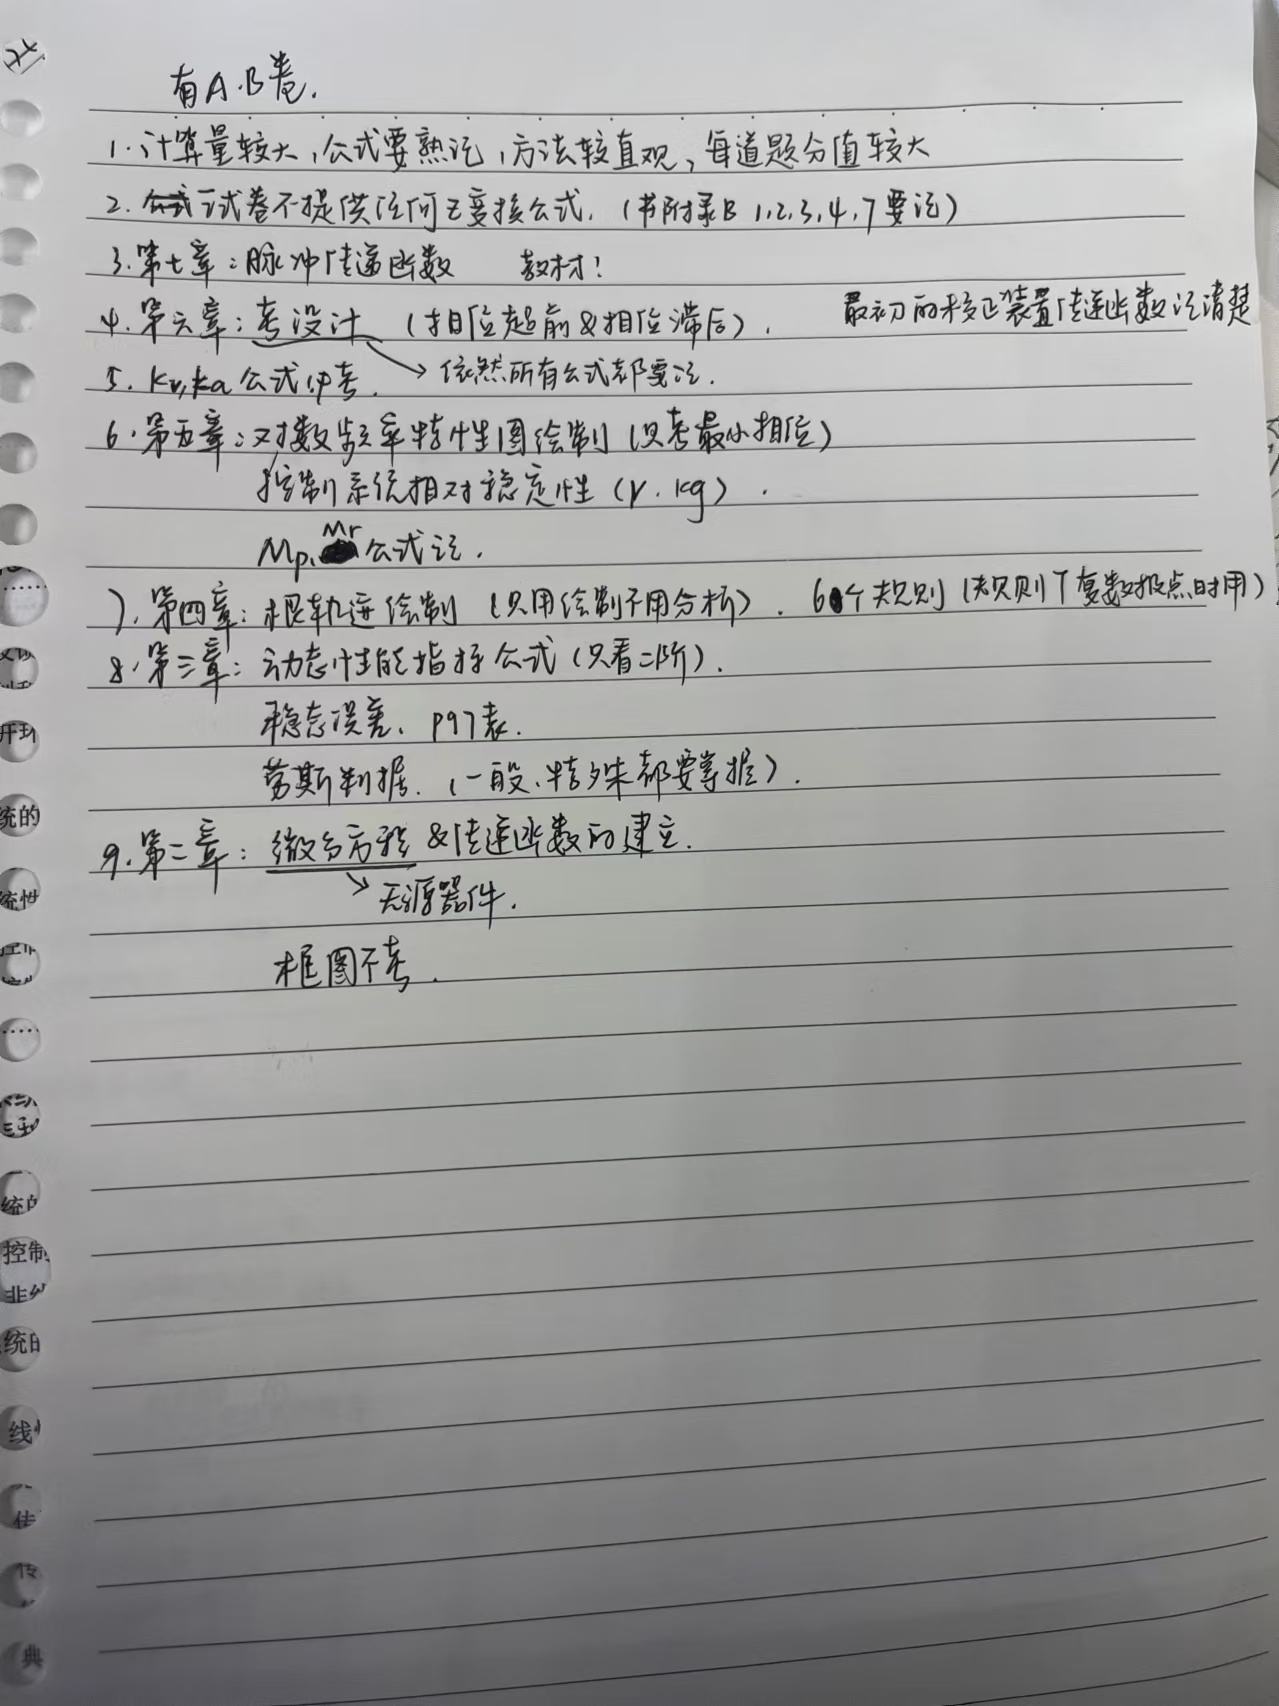 有A.B卷.
1.计算量较大,公式要熟记,方法较直观,每道题分值较大
2.试卷不提供任何Z变换公式.(书附录B 1,2,3,4,7要记)
3.第七章:脉冲传递函数 教材!
4.第六章:考设计(相位超前&相位滞后). 最初的校正装置传递函数记清楚
→依然所有公式都要记.
5.Kv,Ka公式必考.
6.第五章:对数频率特性图绘制(只考最小相位)
控制系统相对稳定性(γ.kg).
Mp、Mr公式记.
7.第四章:根轨迹绘制(只用绘制不用分析).6个规则(规则7复数极点时用)
8.第三章:动态性能指标公式(只看二阶).
稳态误差.P97表.
劳斯判据.(一般、特殊都要掌握).
9.第二章:微分方程&传递函数的建立.
→无源器件.
框图不考.
开环
统的
统性
统的
控制
非线
统的
线
传
典